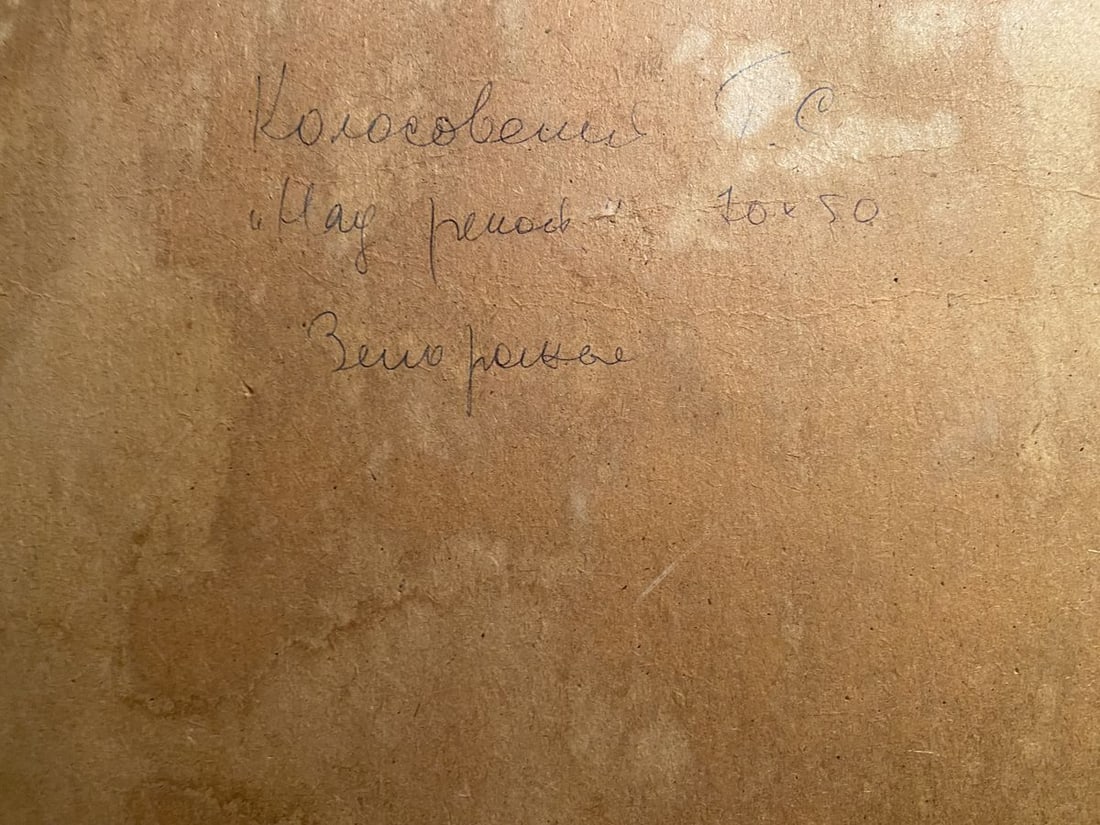 Колосовский Г. С
"Над рекой" 70 x 50
Запорожье